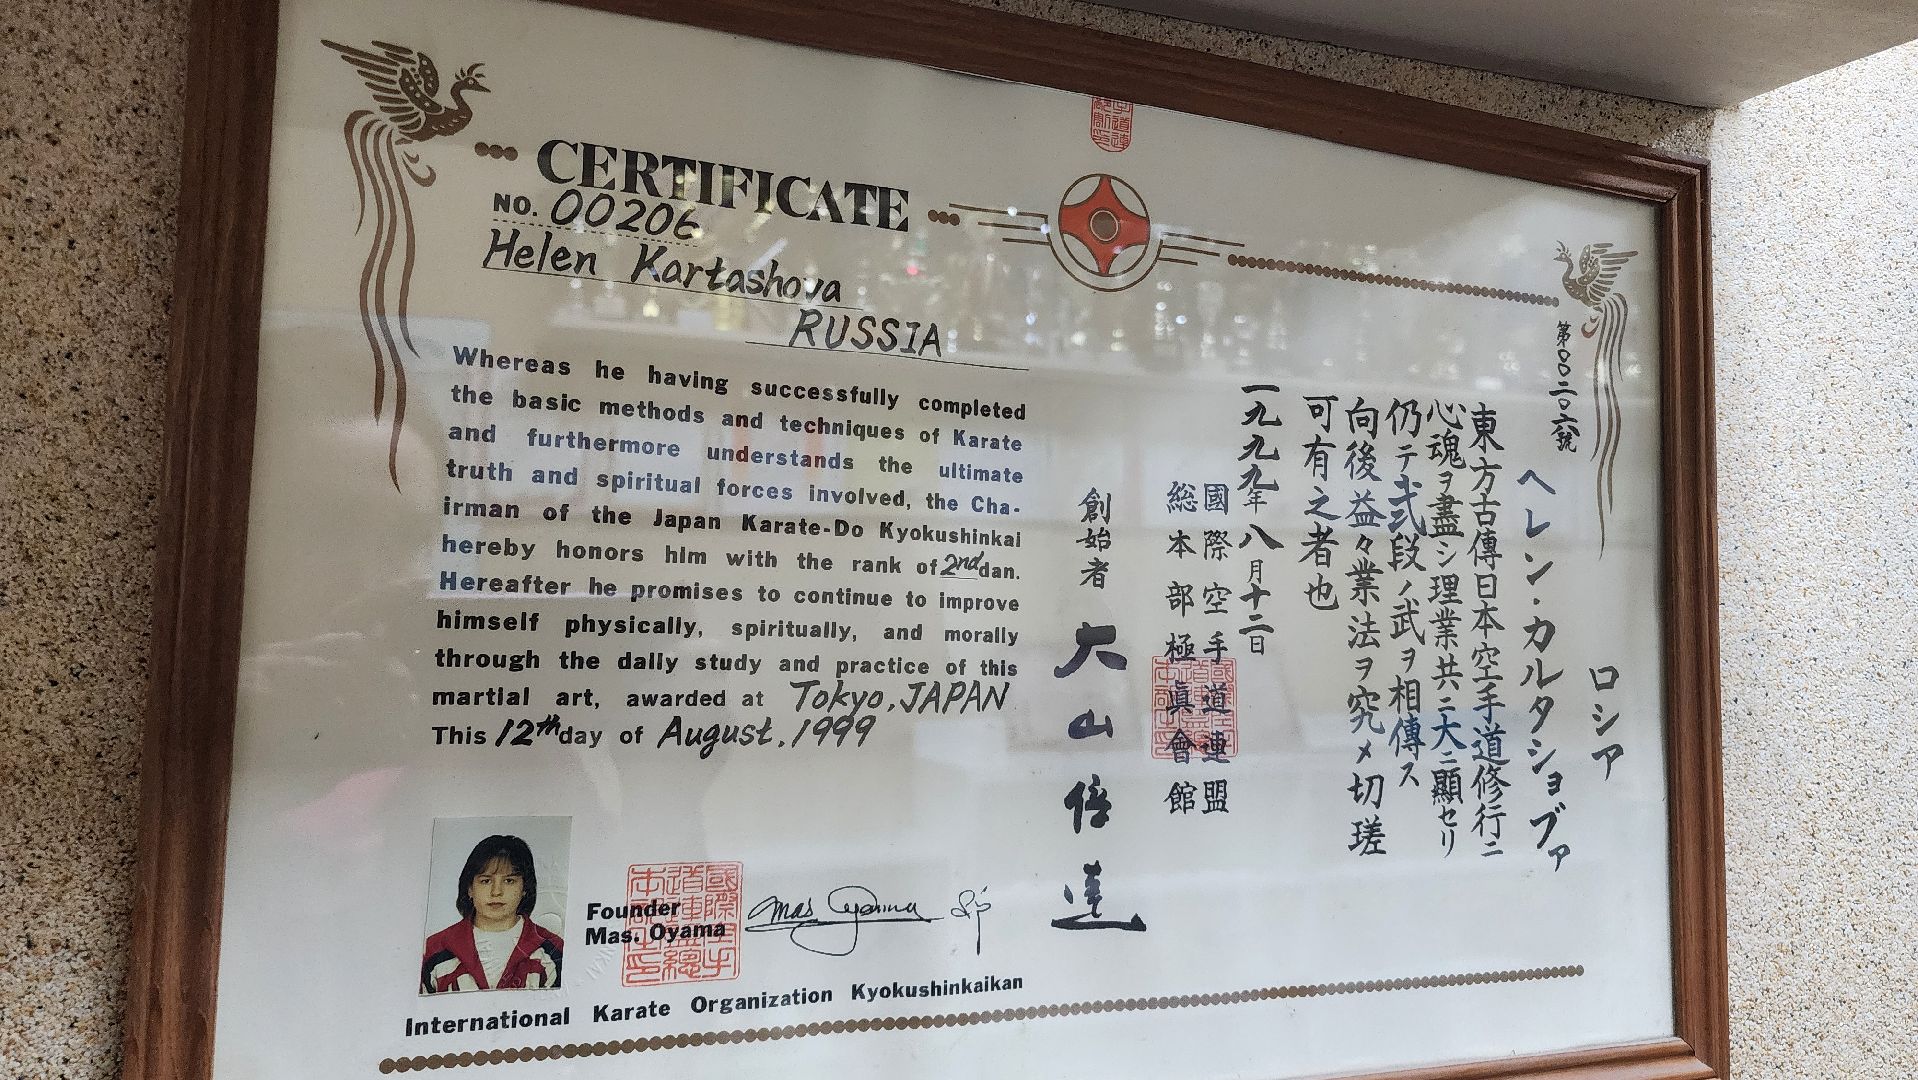 CERTIFICATE
NO. 00206
Helen Kartashova
RUSSIA
Whereas he having successfully completed
the basic methods and techniques of Karate
and furthermore understands the ultimate
truth and spiritual forces involved, the Cha-
irman of the Japan Karate-Do Kyokushinkai
hereby honors him with the rank of 2nd dan.
Hereafter he promises to continue to improve
himself physically, spiritually, and morally
through the daily study and practice of this
martial art, awarded at Tokyo, JAPAN
This 12th day of August, 1999
Founder
Mas. Oyama
Mas Oyama
International Karate Organization Kyokushinkaikan
第〇〇二〇六號
ロシア
ヘレン・カルタショブァ
東方古傳日本空手道修行ニ
心魂ヲ盡シ理業共ニ大ニ顯セリ
仍テ弐段ノ武ヲ相傳ス
向後益々業法ヲ究メ切瑳
可有之者也
一九九九年八月十二日
國際空手道連盟
総本部極眞會館
創始者 大山倍達